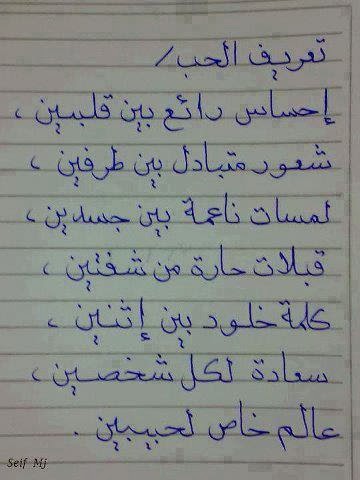 تعريف الحب /
إحساس رائع بين قلبين ،
شعور متبادل بين طرفين ،
لمسات ناعمة بين جسدين ،
قبلات حارة من شفتين ،
كلمة خلود بين إثنين ،
سعادة لكل شخصين ،
عالم خاص لحبيبين .
Seif Mj